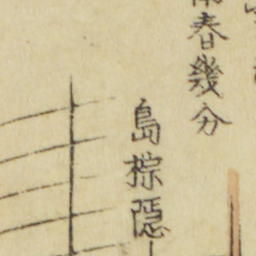 春幾分
島棕隠